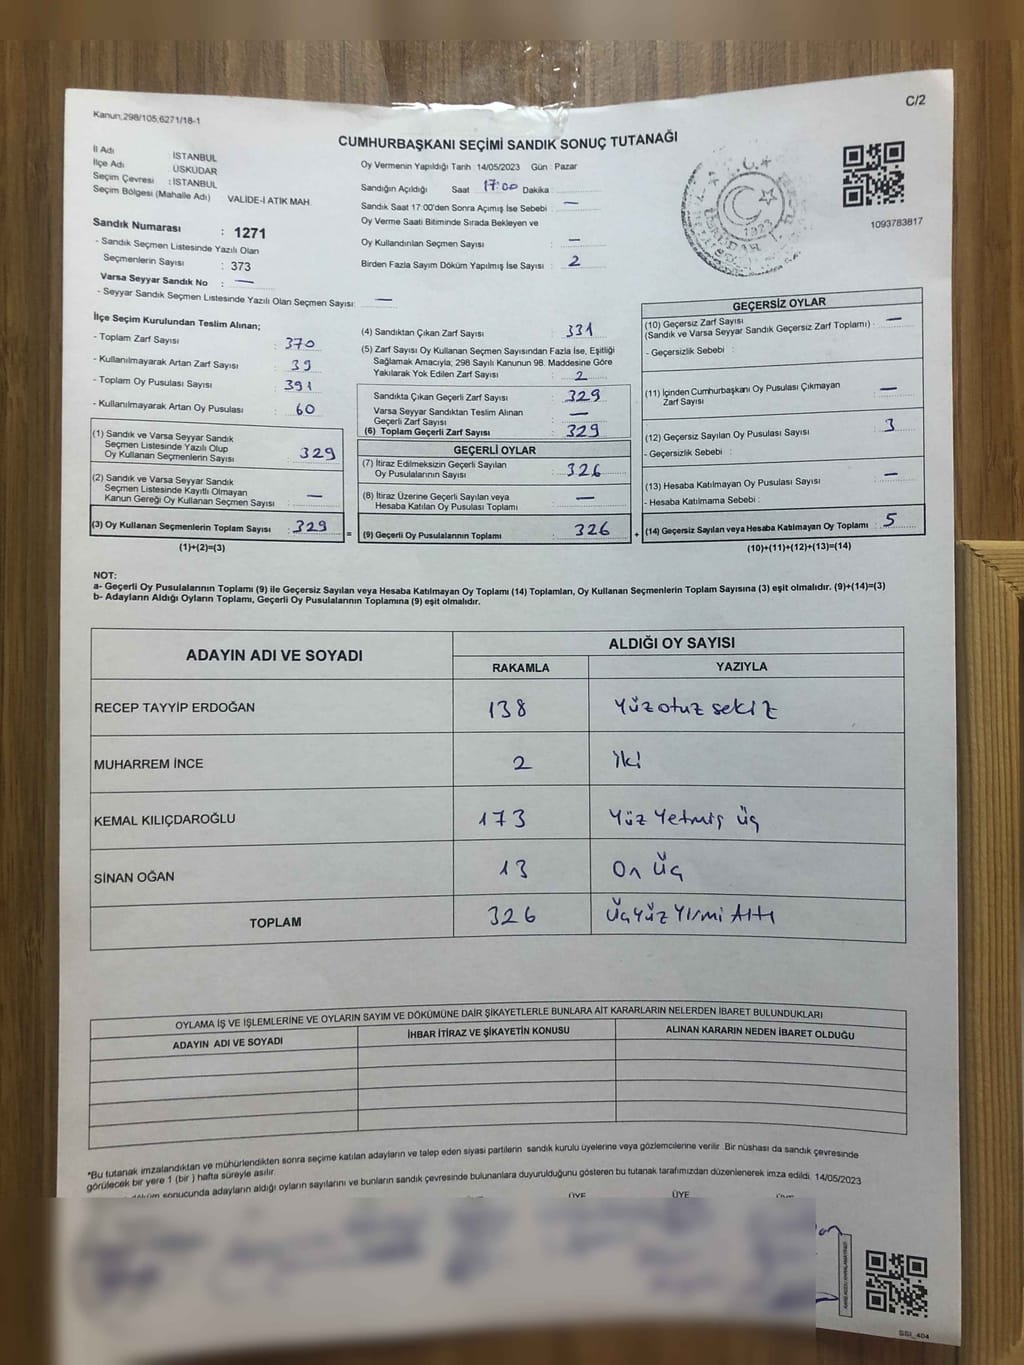 C/2
Kanun,298/105,6271/18-1
CUMHURBAŞKANI SEÇİMİ SANDIK SONUÇ TUTANAĞI
İl Adı İSTANBUL
İlçe Adı ÜSKÜDAR
Seçim Çevresi : İSTANBUL
Seçim Bölgesi (Mahalle Adı) VALİDE-İ ATİK MAH.
Sandık Numarası : 1271
- Sandık Seçmen Listesinde Yazılı Olan
Seçmenlerin Sayısı : 373
Varsa Seyyar Sandık No : —
- Seyyar Sandık Seçmen Listesinde Yazılı Olan Seçmen Sayısı: —
Oy Vermenin Yapıldığı Tarih 14/05/2023 Gün : Pazar
Sandığın Açıldığı Saat 17:00 Dakika
Sandık Saat 17:00'den Sonra Açımış İse Sebebi : —
Oy Verme Saati Bitiminde Sırada Bekleyen ve
Oy Kullandırılan Seçmen Sayısı : —
Birden Fazla Sayım Döküm Yapılmış İse Sayısı : 2
1923
1093783817
İlçe Seçim Kurulundan Teslim Alınan;
- Toplam Zarf Sayısı : 370
- Kullanılmayarak Artan Zarf Sayısı : 39
- Toplam Oy Pusulası Sayısı : 391
- Kullanılmayarak Artan Oy Pusulası : 60
(1) Sandık ve Varsa Seyyar Sandık
Seçmen Listesinde Yazılı Olup
Oy Kullanan Seçmenlerin Sayısı : 329
(2) Sandık ve Varsa Seyyar Sandık
Seçmen Listesinde Kayıtlı Olmayan
Kanun Gereği Oy Kullanan Seçmen Sayısı : —
(3) Oy Kullanan Seçmenlerin Toplam Sayısı : 329
(1)+(2)=(3)
=
(4) Sandıktan Çıkan Zarf Sayısı : 331
(5) Zarf Sayısı Oy Kullanan Seçmen Sayısından Fazla İse, Eşitliği
Sağlamak Amacıyla, 298 Sayılı Kanunun 98. Maddesine Göre
Yakılarak Yok Edilen Zarf Sayısı : 2
Sandıkta Çıkan Geçerli Zarf Sayısı : 329
Varsa Seyyar Sandıktan Teslim Alınan
Geçerli Zarf Sayısı : —
(6) Toplam Geçerli Zarf Sayısı : 329
GEÇERLİ OYLAR
(7) İtiraz Edilmeksizin Geçerli Sayılan
Oy Pusulalarının Sayısı : 326
(8) İtiraz Üzerine Geçerli Sayılan veya
Hesaba Katılan Oy Pusulası Toplamı : —
(9) Geçerli Oy Pusulalarının Toplamı : 326
+
GEÇERSİZ OYLAR
(10) Geçersiz Zarf Sayısı
(Sandık ve Varsa Seyyar Sandık Geçersiz Zarf Toplamı) : —
- Geçersizlik Sebebi :
(11) İçinden Cumhurbaşkanı Oy Pusulası Çıkmayan
Zarf Sayısı : —
(12) Geçersiz Sayılan Oy Pusulası Sayısı : 3
- Geçersizlik Sebebi :
(13) Hesaba Katılmayan Oy Pusulası Sayısı : —
- Hesaba Katılmama Sebebi :
(14) Geçersiz Sayılan veya Hesaba Katılmayan Oy Toplamı : 5
(10)+(11)+(12)+(13)=(14)
NOT:
a- Geçerli Oy Pusulalarının Toplamı (9) ile Geçersiz Sayılan veya Hesaba Katılmayan Oy Toplamı (14) Toplamları, Oy Kullanan Seçmenlerin Toplam Sayısına (3) eşit olmalıdır. (9)+(14)=(3)
b- Adayların Aldığı Oyların Toplamı, Geçerli Oy Pusulalarının Toplamına (9) eşit olmalıdır.
ADAYIN ADI VE SOYADI ALDIĞI OY SAYISI
RAKAMLA YAZIYLA
RECEP TAYYİP ERDOĞAN 138 Yüz otuz sekiz
MUHARREM İNCE 2 iki
KEMAL KILIÇDAROĞLU 173 Yüz Yetmiş üç
SİNAN OĞAN 13 On üç
TOPLAM 326 ÜçYüz Yirmi Altı
OYLAMA İŞ VE İŞLEMLERİNE VE OYLARIN SAYIM VE DÖKÜMÜNE DAİR ŞİKAYETLERLE BUNLARA AİT KARARLARIN NELERDEN İBARET BULUNDUKLARI
ADAYIN ADI VE SOYADI İHBAR İTİRAZ VE ŞİKAYETİN KONUSU ALINAN KARARIN NEDEN İBARET OLDUĞU
*Bu tutanak imzalandıktan ve mühürlendikten sonra seçime katılan adayların ve talep eden siyasi partilerin sandık kurulu üyelerine veya gözlemcilerine verilir. Bir nüshası da sandık çevresinde
görülecek bir yere 1 (bir ) hafta süreyle asılır.
döküm sonucunda adayların aldığı oyların sayılarını ve bunların sandık çevresinde bulunanlara duyurulduğunu gösteren bu tutanak tarafımızdan düzenlenerek imza edildi. 14/05/2023
ÜYE ÜYE
SSI_404